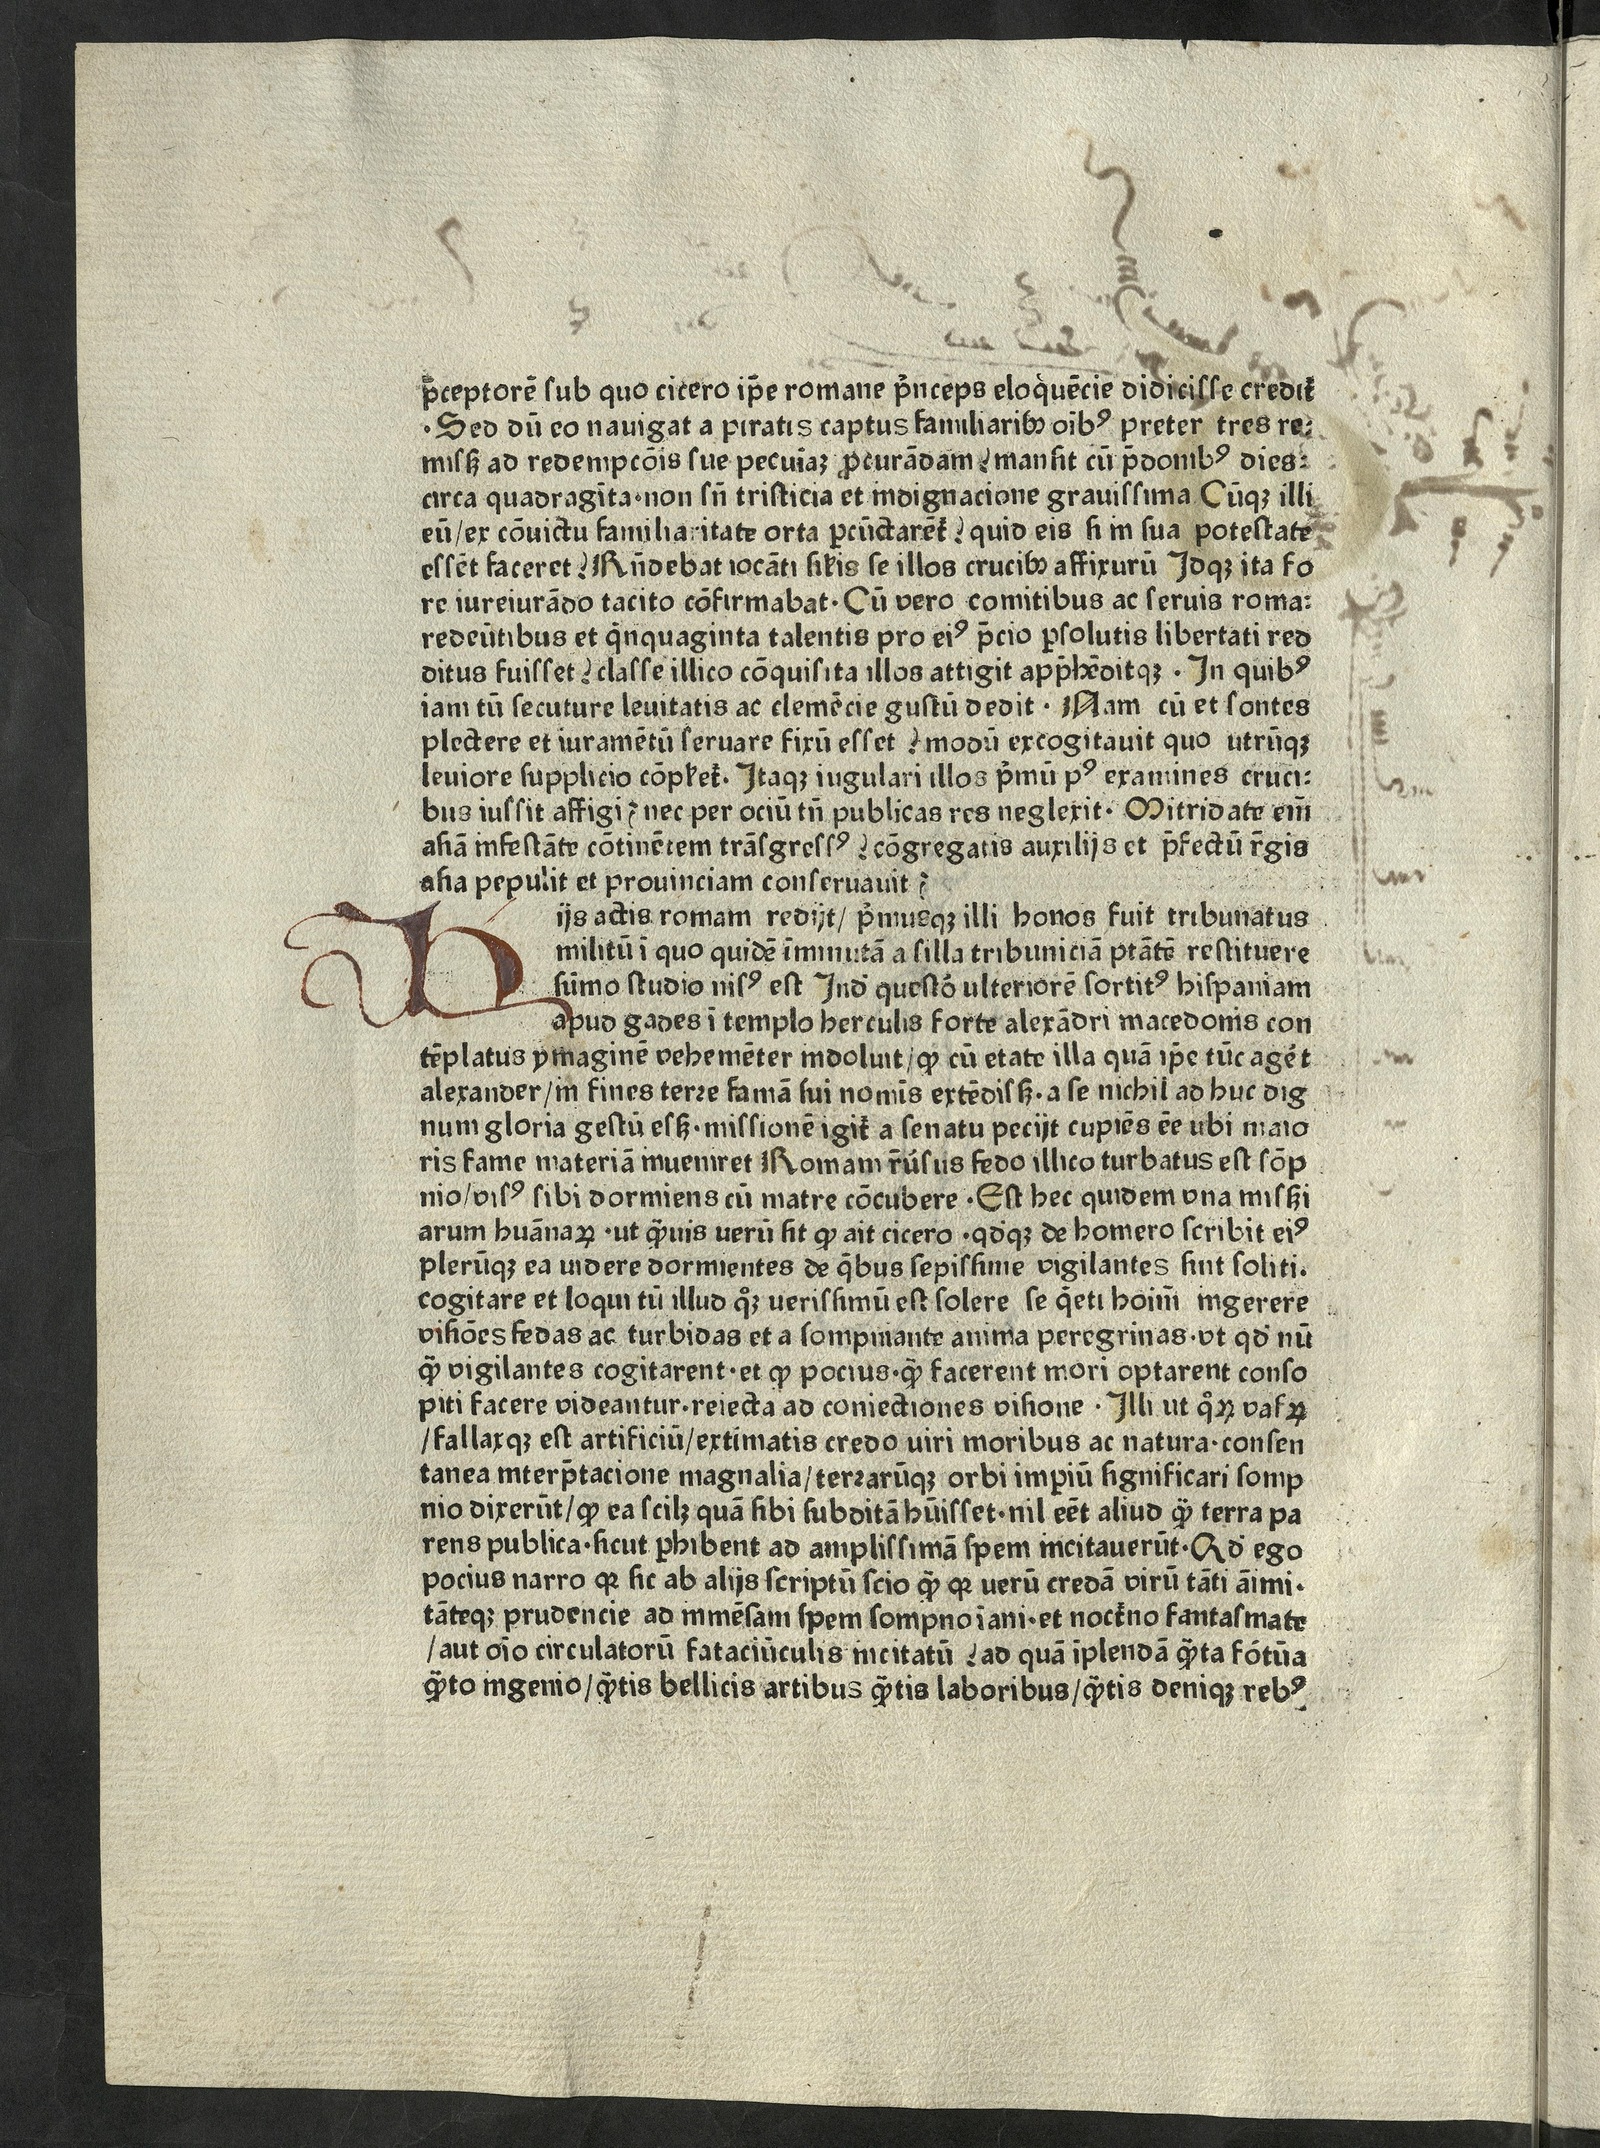 p̄ceptorē sub quo cicero ip̄e romane p̊nceps eloq̊uēcie didicisse credit᷑
·Sed dū eo nauigat a piratis captus familiarib⁊ oīb⁹ preter tres re:
misꝫ ad redempcōis sue pecuīaꝫ ꝓcurādam / mansit cū p̄domb⁹ dies:
circa quadragīta·non sn̄ tristicia et indignacione grauissima Cūqꝫ illi
eū/ex cōuictu familiaritate orta ꝑcūctarēt᷑ / quid eis si in sua potestate
essēt faceret / Rn̄debat iocāti sil̄is se illos crucib⁊ affixurū Idqꝫ ita fo
re iureiurādo tacito cōfirmabat· Cū vero comitibus ac seruis roma:
redeūtibus et q̊nquaginta talentis pro ei⁹ p̄cio ꝑsolutis libertati red
ditus fuisset / classe illico cōquisita illos attigit app̄hēditqꝫ · In quib⁹
iam tū secuture leuitatis ac clemēcie gustū dedit · Nam cū et sontes
plectere et iuramētū seruare fixū esset / modū excogitauit quo utrūqꝫ
leuiore supplicio cōpl̄et᷑· Itaqꝫ iugulari illos p̊mū p⁹ examines cruci:
bus iussit affigi / nec per ociū tn̄ publicas res neglexit· Mitridate em̄
asiā infestāte cōtinētem trāsgress⁹ / cōgregatis auxilijs et p̄fectū r̄gis
asia pepulit et prouinciam conseruauit /
ijs actis romam redijt/ p̊musqꝫ illi honos fuit tribunatus
militū ī quo quidē īminutā a silla tribuniciā ptātē restituere
sūmo studio nis⁹ est Ind̄ questō ulteriorē sortit⁹ hispaniam
apud gades ī templo herculis forte alexādri macedonis con
tēplatus ymaginē vehemēter indoluit/ꝙ cū etate illa quā ip̄e tūc agēt
alexander/in fines terre famā sui nomīs extēdisꝫ·a se nichil ad huc dig
num gloria gestū esꝫ·missionē igit᷑ a senatu pecijt cupiēs ēe ubi maio
ris fame materiā inueniret Romam r̄usus fedo illico turbatus est sōp
nio/vis⁹ sibi dormiens cū matre cōcubere ·Est hec quidem vna misꝫi
arum huānaꝝ ·ut q̄̈uis uerū sit ꝙ ait cicero ·qd̄qꝫ de homero scribit ei⁹
plerūqꝫ ea uidere dormientes de q̊bus sepissime vigilantes sint soliti.
cogitare et loqui tū illud q̊ꝫ uerissimū est solere se q̊eti hoim̄ ingerere
visiōes fedas ac turbidas et a sompniante anima peregrinas·vt qd̄ nū
q̄̈ vigilantes cogitarent·et ꝙ pocius·q̄̈ facerent mori optarent conso
piti facere videantur·reiecta ad coniectiones visione · Illi ut q̊ꝝ vafꝝ
/fallaxqꝫ est artificiū/extimatis credo uiri moribus ac natura·consen
tanea interp̄tacione magnalia/terrarūqꝫ orbi imꝑiū significari somp
nio dixerūt/ꝙ ea scilꝫ quā sibi subditā hūisset·nil eēt aliud q̄̈ terra pa
rens publica·sicut ꝑhibent ad amplissimā spem incitauerūt·Qd̄ ego
pocius narro qꝛ sic ab alijs scriptū scio q̄̈ qꝛ uerū credā virū tāti āimi·
tāteqꝫ prudencie ad inmēsam spem sompno īani·et noct᷑no fantasmate
/aut oīo circulatorū fataciūculis incitatū / ad quā īplendā q̄̈ta fōtūa
q̄̈to ingenio/q̄̈tis bellicis artibus q̄̈tis laboribus/q̄̈tis deniqꝫ reb⁹